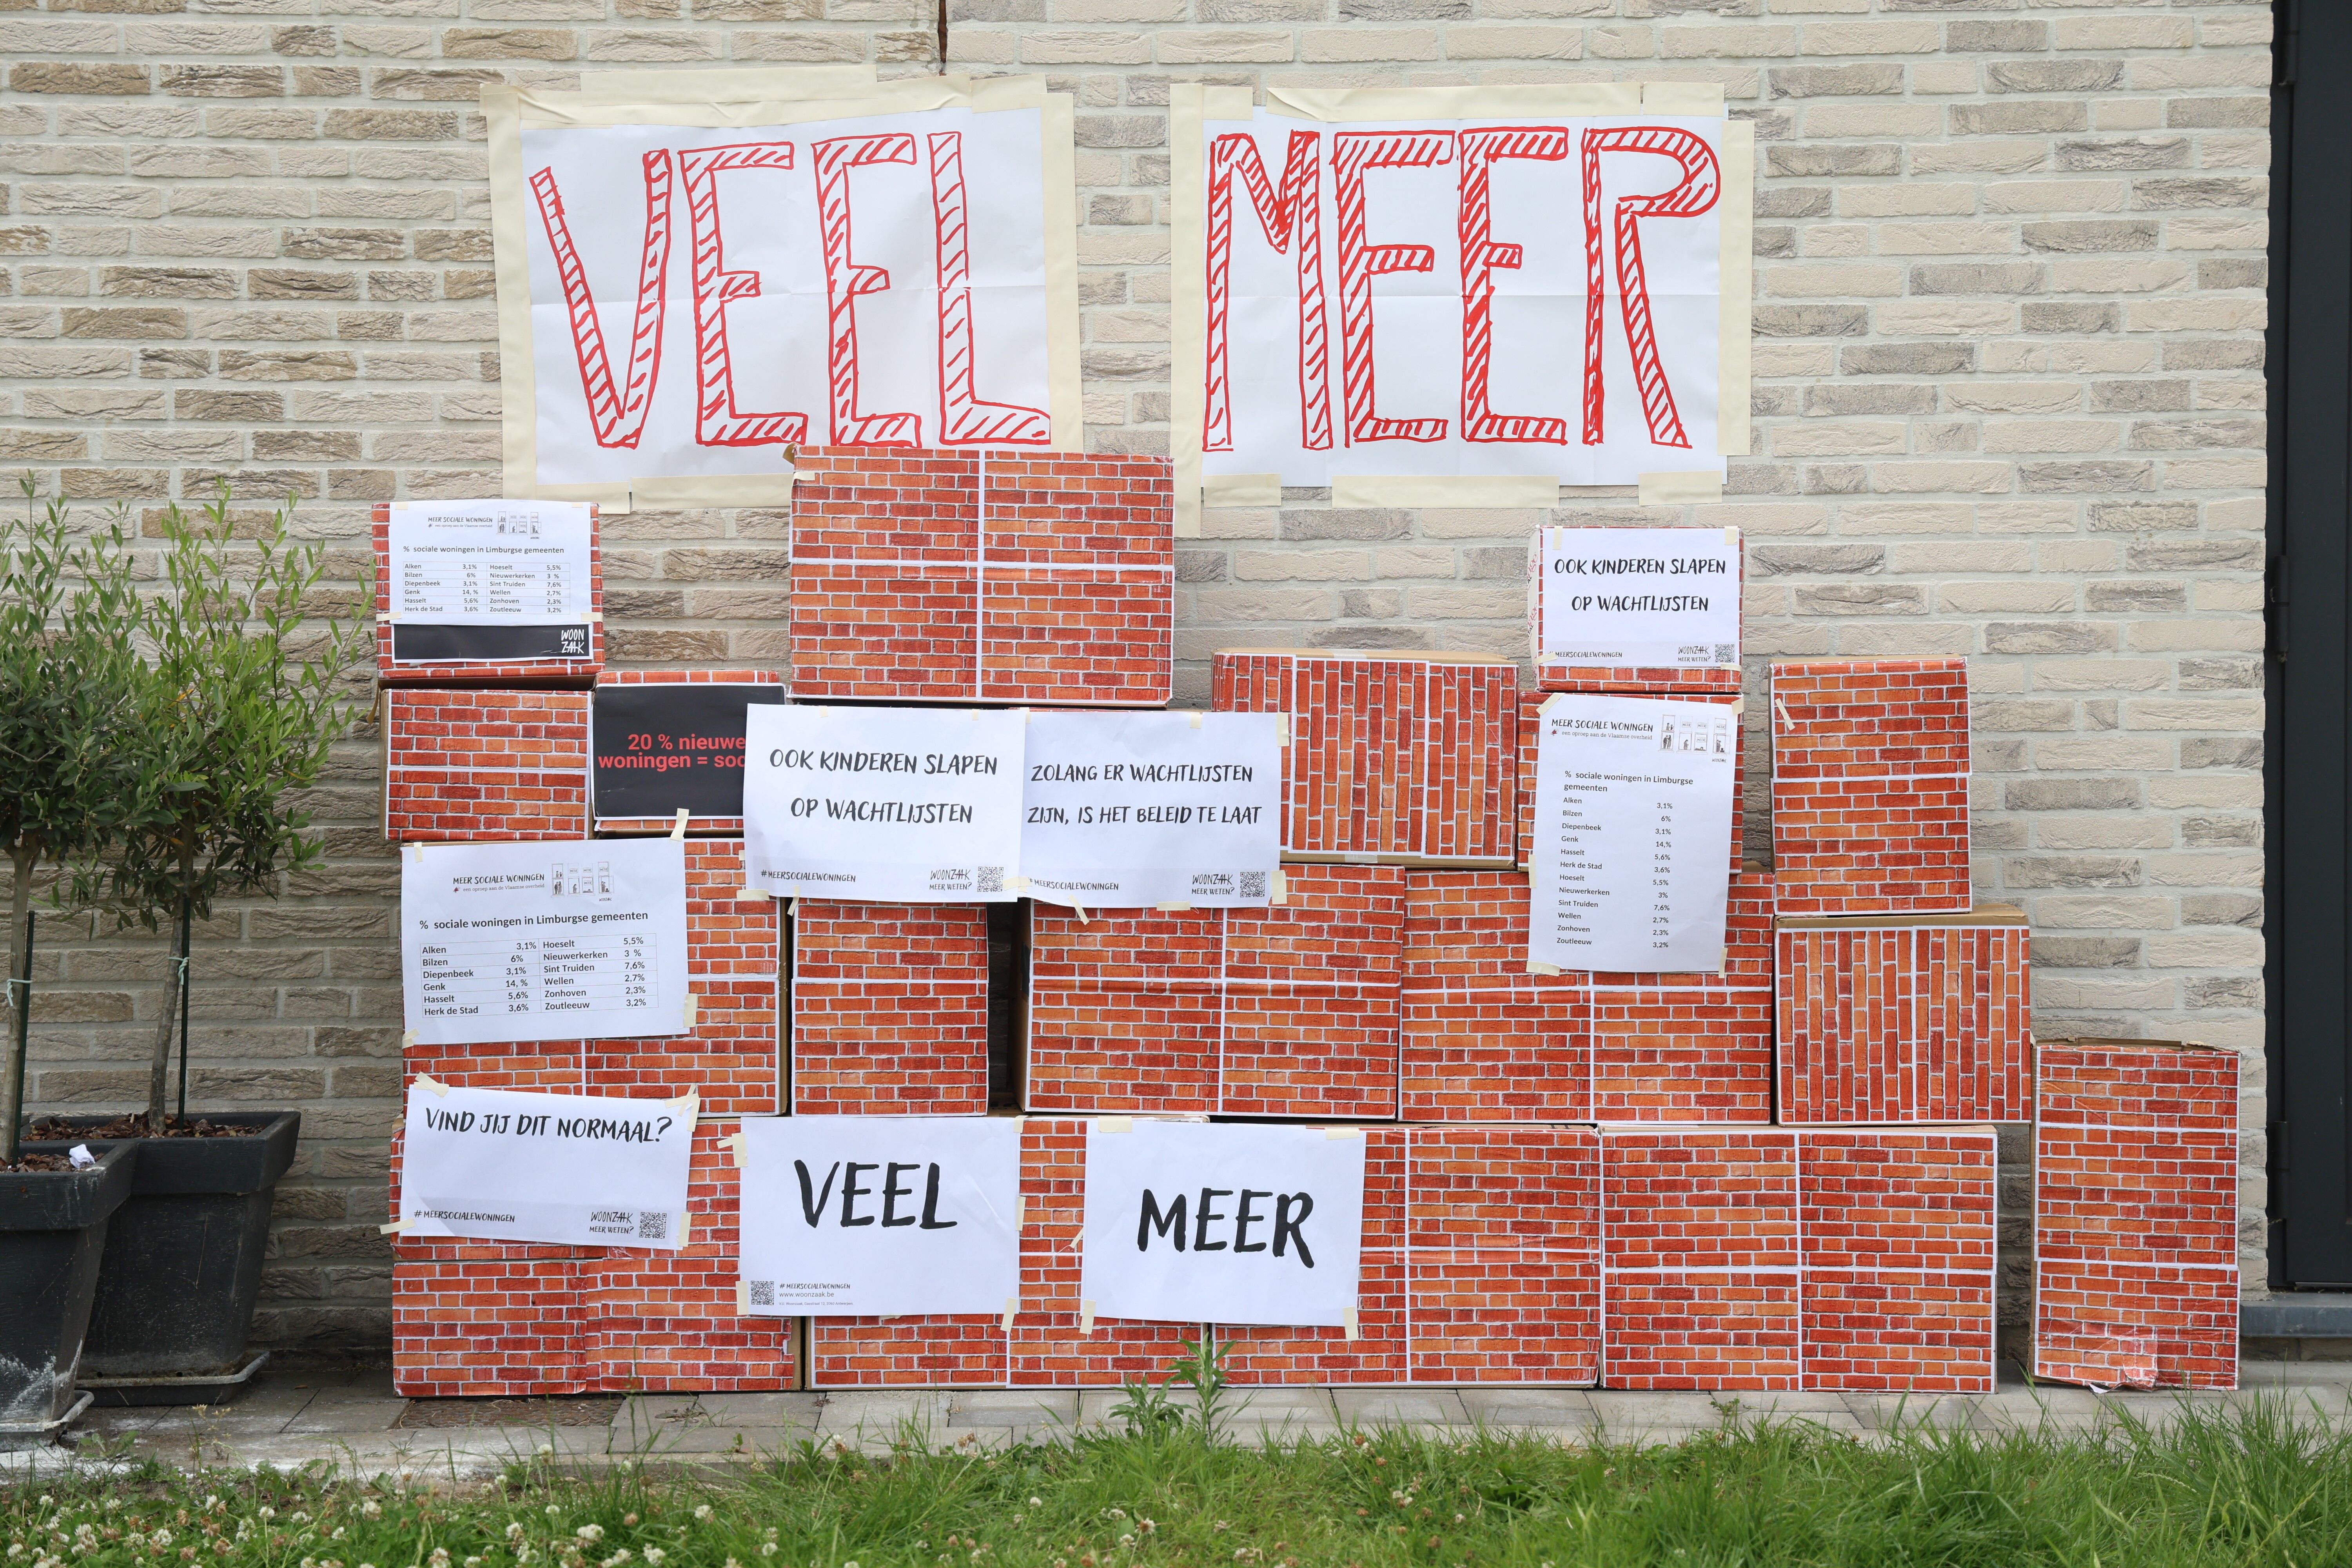 VEEL
MEER
MEER SOCIALE WONINGEN
een oproep aan de Vlaamse overheid
% sociale woningen in Limburgse gemeenten
Alken 3,1% Hoeselt 5,5%
Bilzen 6% Nieuwerkerken 3 %
Diepenbeek 3,1% Sint Truiden 7,6%
Genk 14, % Wellen 2,7%
Hasselt 5,6% Zonhoven 2,3%
Herk de Stad 3,6% Zoutleeuw 3,2%
WOON
ZAAK
OOK KINDEREN SLAPEN
OP WACHTLIJSTEN
#MEERSOCIALEWONINGEN
WOONZAAK
MEER WETEN?
20 % nieuwe
woningen = soc
OOK KINDEREN SLAPEN
OP WACHTLIJSTEN
#MEERSOCIALEWONINGEN
WOONZAAK
MEER WETEN?
ZOLANG ER WACHTLIJSTEN
ZIJN, IS HET BELEID TE LAAT
#MEERSOCIALEWONINGEN
WOONZAAK
MEER WETEN?
MEER SOCIALE WONINGEN
een oproep aan de Vlaamse overheid
% sociale woningen in Limburgse
gemeenten
Alken 3,1%
Bilzen 6%
Diepenbeek 3,1%
Genk 14,%
Hasselt 5,6%
Herk de Stad 3,6%
Hoeselt 5,5%
Nieuwerkerken 3%
Sint Truiden 7,6%
Wellen 2,7%
Zonhoven 2,3%
Zoutleeuw 3,2%
MEER SOCIALE WONINGEN
een oproep aan de Vlaamse overheid
% sociale woningen in Limburgse gemeenten
Alken 3,1% Hoeselt 5,5%
Bilzen 6% Nieuwerkerken 3 %
Diepenbeek 3,1% Sint Truiden 7,6%
Genk 14, % Wellen 2,7%
Hasselt 5,6% Zonhoven 2,3%
Herk de Stad 3,6% Zoutleeuw 3,2%
VIND JIJ DIT NORMAAL?
#MEERSOCIALEWONINGEN
WOONZAAK
MEER WETEN?
VEEL
#MEERSOCIALEWONINGEN
www.woonzaak.be
MEER